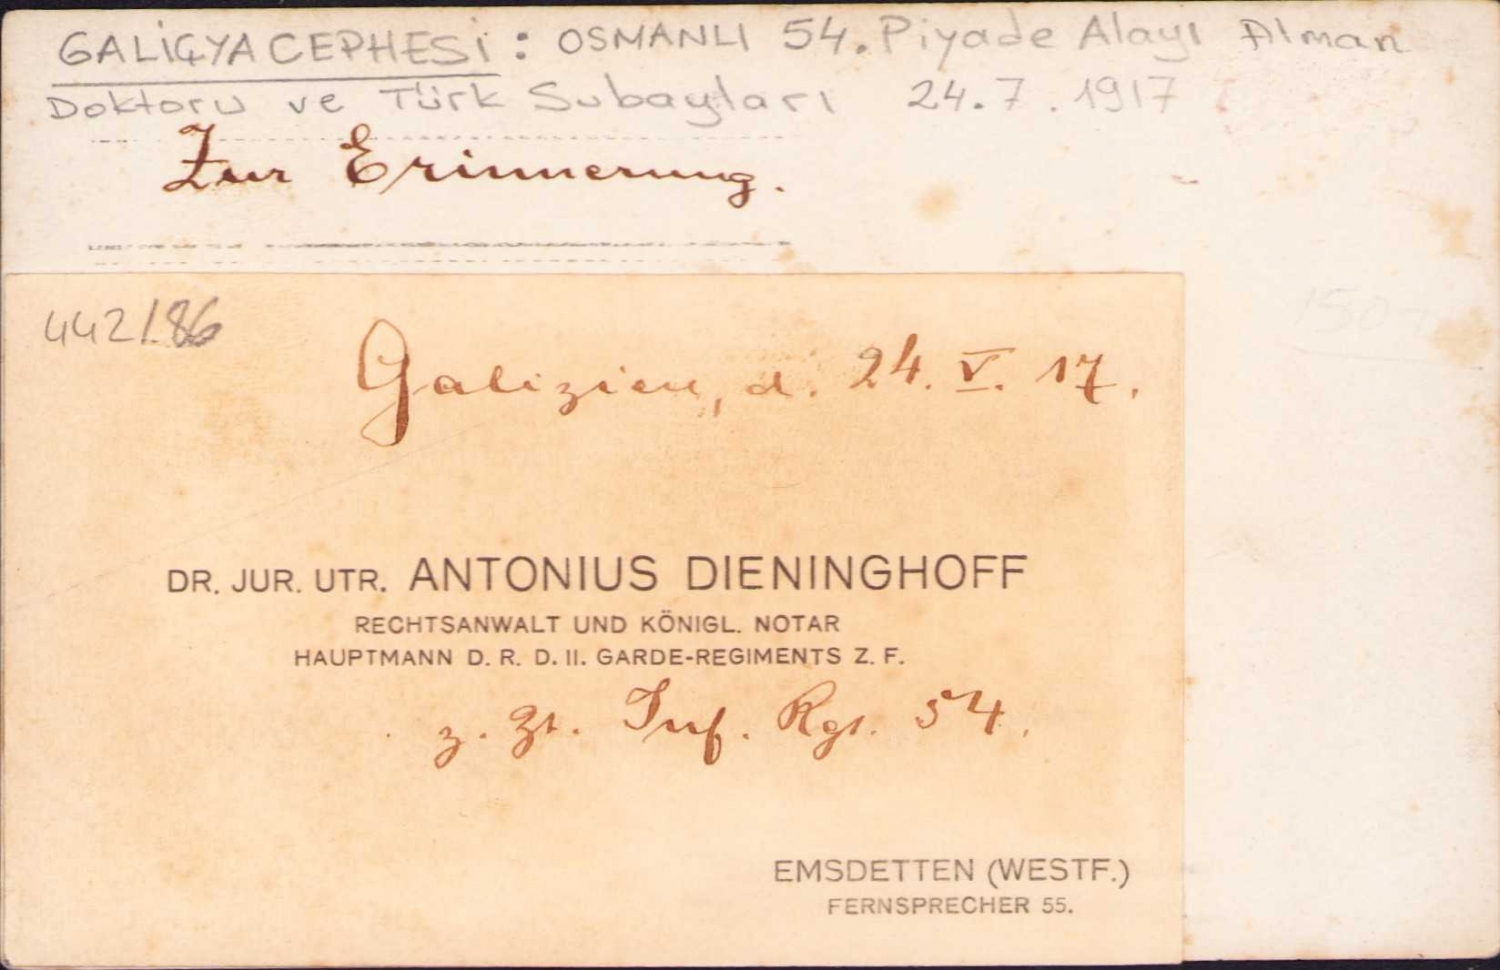 GALİÇYA CEPHESİ: OSMANLI 54. Piyade Alayı Alman
Doktoru ve Türk Subayları 24.7.1917
Zur Erinnerung.
442/86
Galizien, d. 24. V. 17.
DR. JUR. UTR. ANTONIUS DIENINGHOFF
RECHTSANWALT UND KÖNIGL. NOTAR
HAUPTMANN D. R. D. II. GARDE-REGIMENTS Z. F.
z. Zt. Inf. Rgt. 54.
EMSDETTEN (WESTF.)
FERNSPRECHER 55.